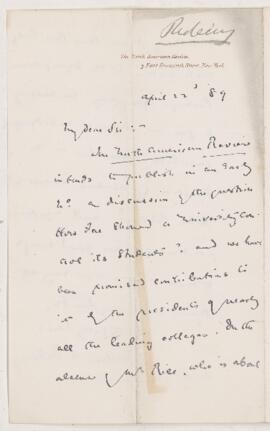 The North American Review
3 East Fourteenth Street, New York
April 22d 89
My dear Sir:—
The North American Review
intends to publish in an early
No. a discussion of the question
How Far Should a University Con-
trol its Students? and we have
been promised contributions to
it by the presidents of nearly
all the leading colleges. In the
absence of Mr. Rice, who is about